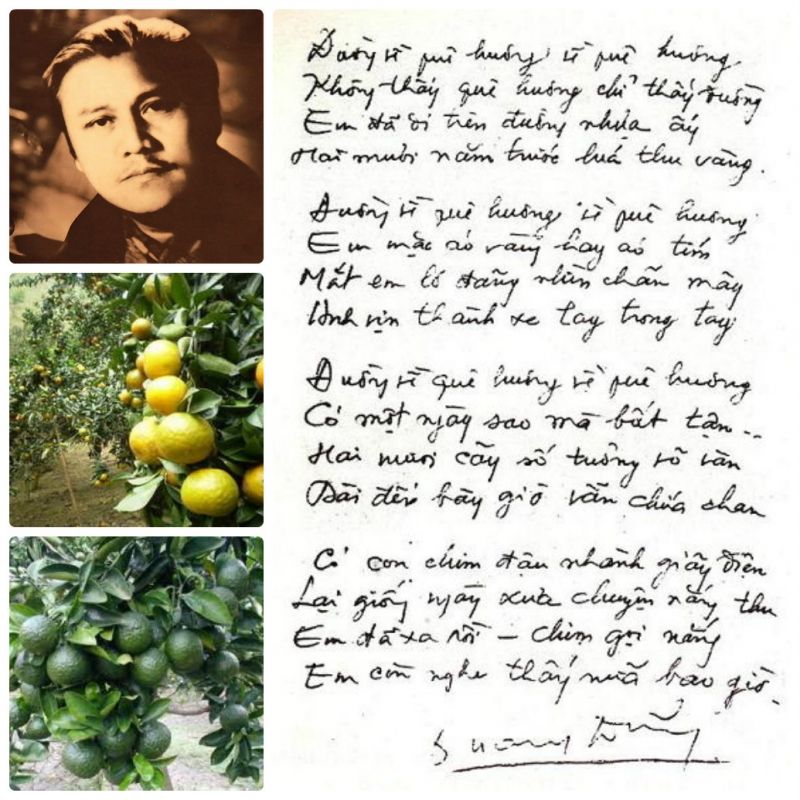 Đường về quê hương về quê hương
Không thấy quê hương chỉ thấy đường
Em đã đi trên đường nhựa ấy
Hai mươi năm trước luá thu vàng.
Đường về quê hương về quê hương
Em mặc áo vàng hay áo tím
Mắt em lơ đãng nhìn chân mây
Anh vịn thành xe tay trong tay
Đường về quê hương về quê hương
Có một ngày sao mà bất tận..
Hai mươi cây số tưởng vô vàn
Dài đến bây giờ vẫn chứa chan
Có con chim đậu nhành giây điện
Lại giống ngày xưa chuyện nắng thu
Em đã xa rồi – chim gọi nắng
Em còn nghe thấy nữa bao giờ.
Quang Dũng